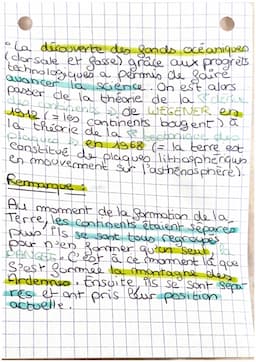 La découverte des fonds océaniques
(dorsale et fosse) grâce aux progrès
technologiques a permis de faire
avancer la science. On est alors
passer de la théorie de la "dérive
des continents" de WEGENER en
1912 (= les continents bougent) à
la théorie de la "tectonique des
plaques" en 1968 (= la terre est
constitué de plaques lithosphériques
en mouvement sur l'asthénosphère).
Remarque :
Au moment de la formation de la
Terre, les continents étaient séparés
puis ils se sont tous regroupés
pour n'en former qu'un seul, la
. C'est à ce moment là que
s'est formée la montagne des
Ardennes. Ensuite ils se sont sépa-
rés et ont pris leur position
actuelle.